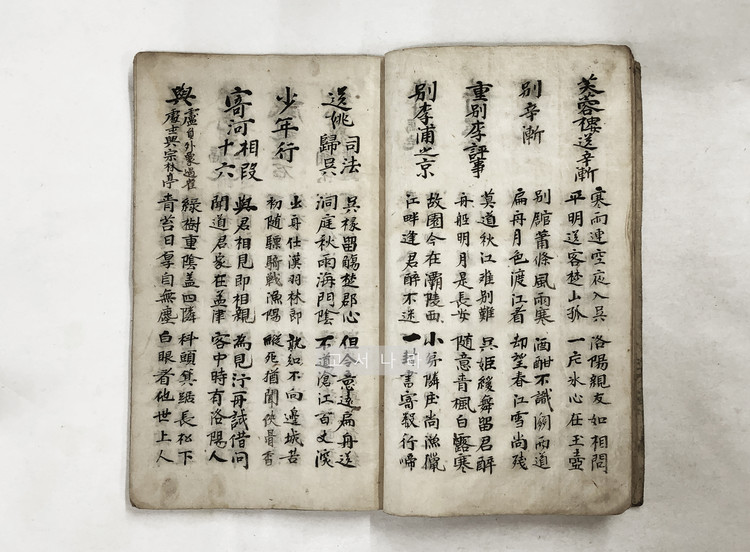 芙蓉樓送辛漸
寒雨連空夜入吳 洛陽親友如相問
平明送客楚山孤 一片氷心在玉壺
別辛漸
別館蕭條風雨寒 酒酣不識関西道
扁舟月色渡江看 却望春江雪尚残
重別李評事
莫道秋江难別難 吳姬緩舞留君醉
舟船明月是長安 隨意青楓白露寒
別李浦之京
故園今在灞陵西 小弟隣庄尚漁獵
江畔逢君醉不迷 一封書寄数行啼
送姚司法歸吳
吳掾留觴楚郡心 但令意遠扁舟送
洞庭秋雨海門陰 不道滄江百丈深
少年行
出身仕漢羽林郎 孰知不向邊城苦
初隨驃騎戰漁陽 縱死猶聞俠骨香
寄河相段十六
與君相見即相親 為見行舟試借問
聞道君家在孟津 客中時有洛陽人
與盧員外象過崔
處士興宗林亭
綠樹重陰盖四隣 科頭箕踞長松下
青苔日厚自無塵 白眼看他世上人